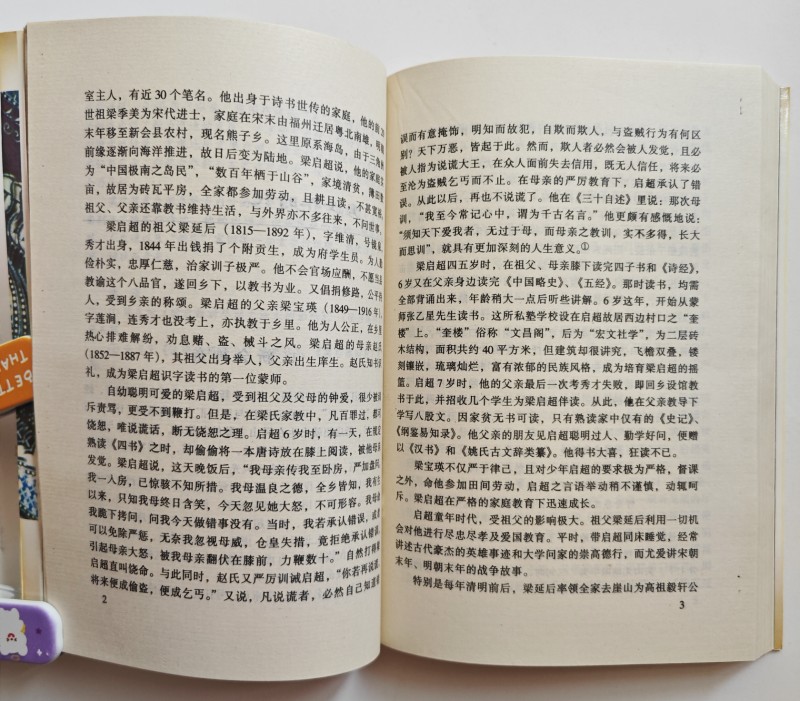 室主人，有近30个笔名。他出身于诗书世传的家庭，他的前20
世祖梁季美为宋代进士，家庭在宋末由福州迁居粤北南雄，明朝
末年移至新会县农村，现名熊子乡。这里原系海岛，由于三角洲
前缘逐渐向海洋推进，故日后变为陆地。梁启超说，他的家庭
为“中国极南之岛民”，“数百年栖于山谷”，家境清贫，薄田
亩，故居为砖瓦平房，全家都参加劳动，且耕且读，不甚宽裕
祖父、父亲还靠教书维持生活，与外界亦不多往来，不问世事。
梁启超的祖父梁延后（1815—1892年），字维清，号镜泉
秀才出身，1844年出钱捐了个附贡生，成为府学生员。为人
俭朴实，忠厚仁慈，治家训子极严。他不会官场应酬，不愿当
教谕这个八品官，遂回乡下，以教书为业。又倡捐修路，公平待
人，受到乡亲的称颂。梁启超的父亲梁宝瑛（1849—1916年），
字莲涧，连秀才也没考上，亦执教于乡里。他为人公正，在乡里
热心排难解纷，劝息赌、盗、械斗之风。梁启超的母亲赵氏
（1852—1887年），其祖父出身举人，父亲出生庠生。赵氏知书识
礼，成为梁启超识字读书的第一位蒙师。
自幼聪明可爱的梁启超，受到祖父及父母的钟爱，很少被训
斥责骂，更受不到鞭打。但是，在梁氏家教中，凡百罪过，都可
饶恕，唯说谎话，断无饶恕之理。启超6岁时，有一天，在规定
熟读《四书》之时，却偷偷将一本唐诗放在膝上阅读，被他母亲
发觉。梁启超说，这天晚饭后，“我母亲传我至卧房，严加盘问，
我一人房，已惊骇不知所措。我母温良之德，全乡皆知，我有生
以来，只知我母终日含笑，今天忽见她大怒，不可形容。我母命
我跪下拷问，问我今天做错事没有。当时，我若承认错误，或者
可以免除严惩，无奈我忽视母威，仓皇失措，竟拒绝承认错误，
引起母亲大怒，被我母亲翻伏在膝前，力鞭数十。”自然打得梁
启超直叫饶命。与此同时，赵氏又严厉训诫启超，“你若再说谎，
将来便成偷盗，便成乞丐。”又说，凡说谎者，必然自己知道错
2
误而有意掩饰，明知而故犯，自欺而欺人，与盗贼行为有何区
别？天下万恶，皆起于此。然而，欺人者必然会被人发觉，且必
被人指为说谎大王，在众人面前失去信用，既无人信任，将来必
至沦为盗贼乞丐而不止。在母亲的严厉教育下，启超承认了错
误。从此以后，再也不说谎了。他在《三十自述》里说：那次母
训，“我至今常记心中，谓为千古名言。”他更颇有感慨地说：
“须知天下爱我者，无过于母，而母亲之教训，实不多得，长大
而思训”，就具有更加深刻的人生意义。①
梁启超四五岁时，在祖父、母亲膝下读完四子书和《诗经》，
6岁又在父亲身边读完《中国略史》、《五经》。那时读书，均须
全部背诵出来，年龄稍大一点后听些讲解。6岁这年，开始从蒙
师张乙星先生读书。这所私塾学校设在启超故居西边村口之“奎
楼”上。“奎楼”俗称“文昌阁”，后为“宏文社学”，为二层砖
木结构，面积共约40平方米，但建筑却很讲究，飞檐双叠，镂
刻镶嵌，琉璃灿烂，富有浓郁的民族风格，成为培育梁启超的摇
篮。启超7岁时，他的父亲最后一次考秀才失败，即回乡设馆教
书于此，并招收几个学生为梁启超伴读。从此，他在父亲教导下
学写八股文。因家贫无书可读，只有熟读家中仅有的《史记》、
《纲鉴易知录》。他父亲的朋友见启超聪明过人、勤学好问，便赠
以《汉书》和《姚氏古文辞类纂》。他得书大喜，狂读不已。
梁宝瑛不仅严于律己，且对少年启超的要求极为严格，督课
之外，命他参加田间劳动，启超之言语举动稍不谨慎，动辄呵
斥。梁启超在严格的家庭教育下迅速成长。
启超童年时代，受祖父的影响极大。祖父梁延后利用一切机
会对他进行尽忠尽孝及爱国教育。平时，带启超同床睡觉，经常
讲述古代豪杰的英雄事迹和大学问家的崇高德行，而尤爱讲宋朝
末年、明朝末年的战争故事。
特别是每年清明前后，梁延后率领全家去崖山为高祖毅轩公
3